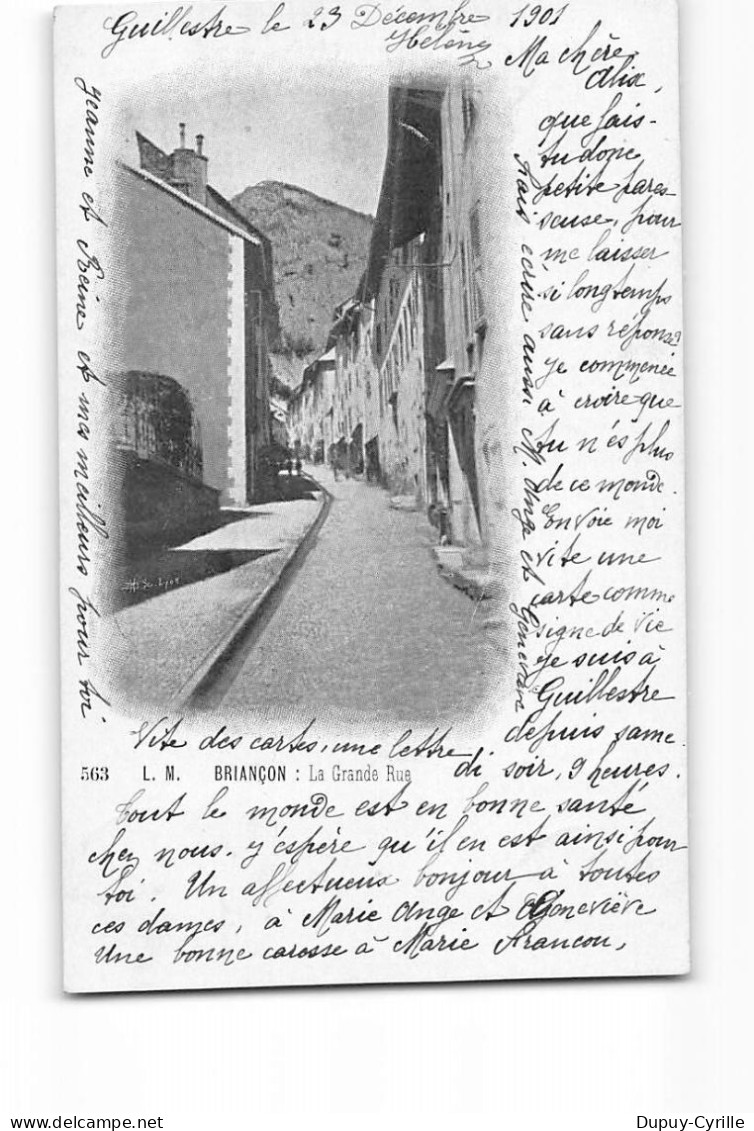 Guillestre le 23 Décembre 1901
Hélène
Ma chère
Alix,
que fais-
tu donc
petite pares
seuse, pour
me laisser
si longtemps
sans réponse?
Je commence
à croire que
tu n'es plus
de ce monde.
Envoie moi
vite une
carte comme
signe de vie
Je suis à
Guillestre
depuis same
di soir, 9 heures.
Vite des cartes, une lettre
563 L. M. BRIANÇON : La Grande Rue
Tout le monde est en bonne santé
chez nous. J'espère qu'il en est ainsi pour
toi. Un affectueux bonjour à toutes
ces dames, à Marie Ange et Geneviève
Une bonne caresse à Marie Francou,
Jeanne et Reine et mes meilleurs pour toi
Fais écrire aussi M. Ange et Geneviève
Dupuy-Cyrille